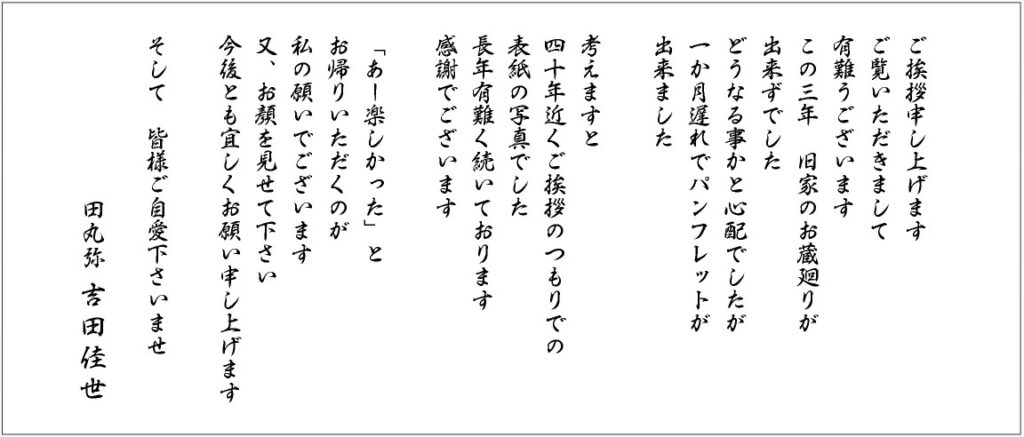 ご挨拶申し上げます
ご覧いただきまして
有難うございます
この三年　旧家のお蔵廻りが
出来ずでした
どうなる事かと心配でしたが
一か月遅れでパンフレットが
出来ました
考えますと
四十年近くご挨拶のつもりでの
表紙の写真でした
長年有難く続いております
感謝でございます
「あー楽しかった」と
お帰りいただくのが
私の願いでございます
又、お顔を見せて下さい
今後とも宜しくお願い申し上げます
そして　皆様ご自愛下さいませ
田丸弥 吉田佳世